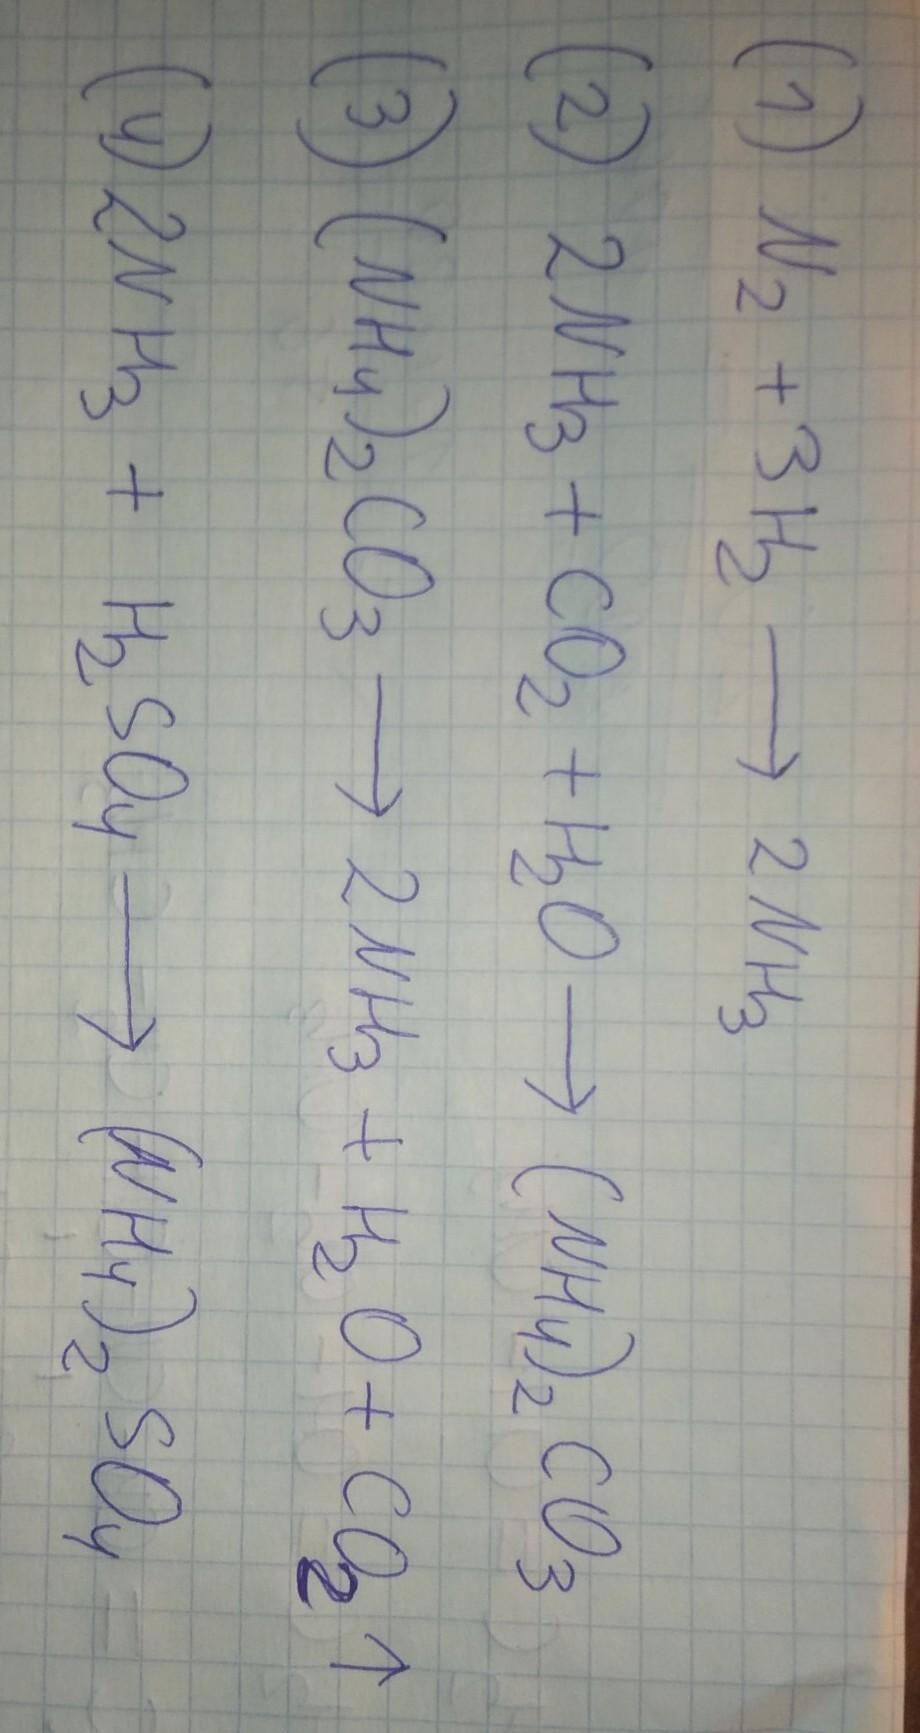 (1) N₂ + 3H₂ → 2NH₃
(2) 2NH₃ + CO₂ + H₂O → (NH₄)₂CO₃
(3) (NH₄)₂CO₃ → 2NH₃ + H₂O + CO₂ ↑
(4) 2NH₃ + H₂SO₄ → (NH₄)₂SO₄